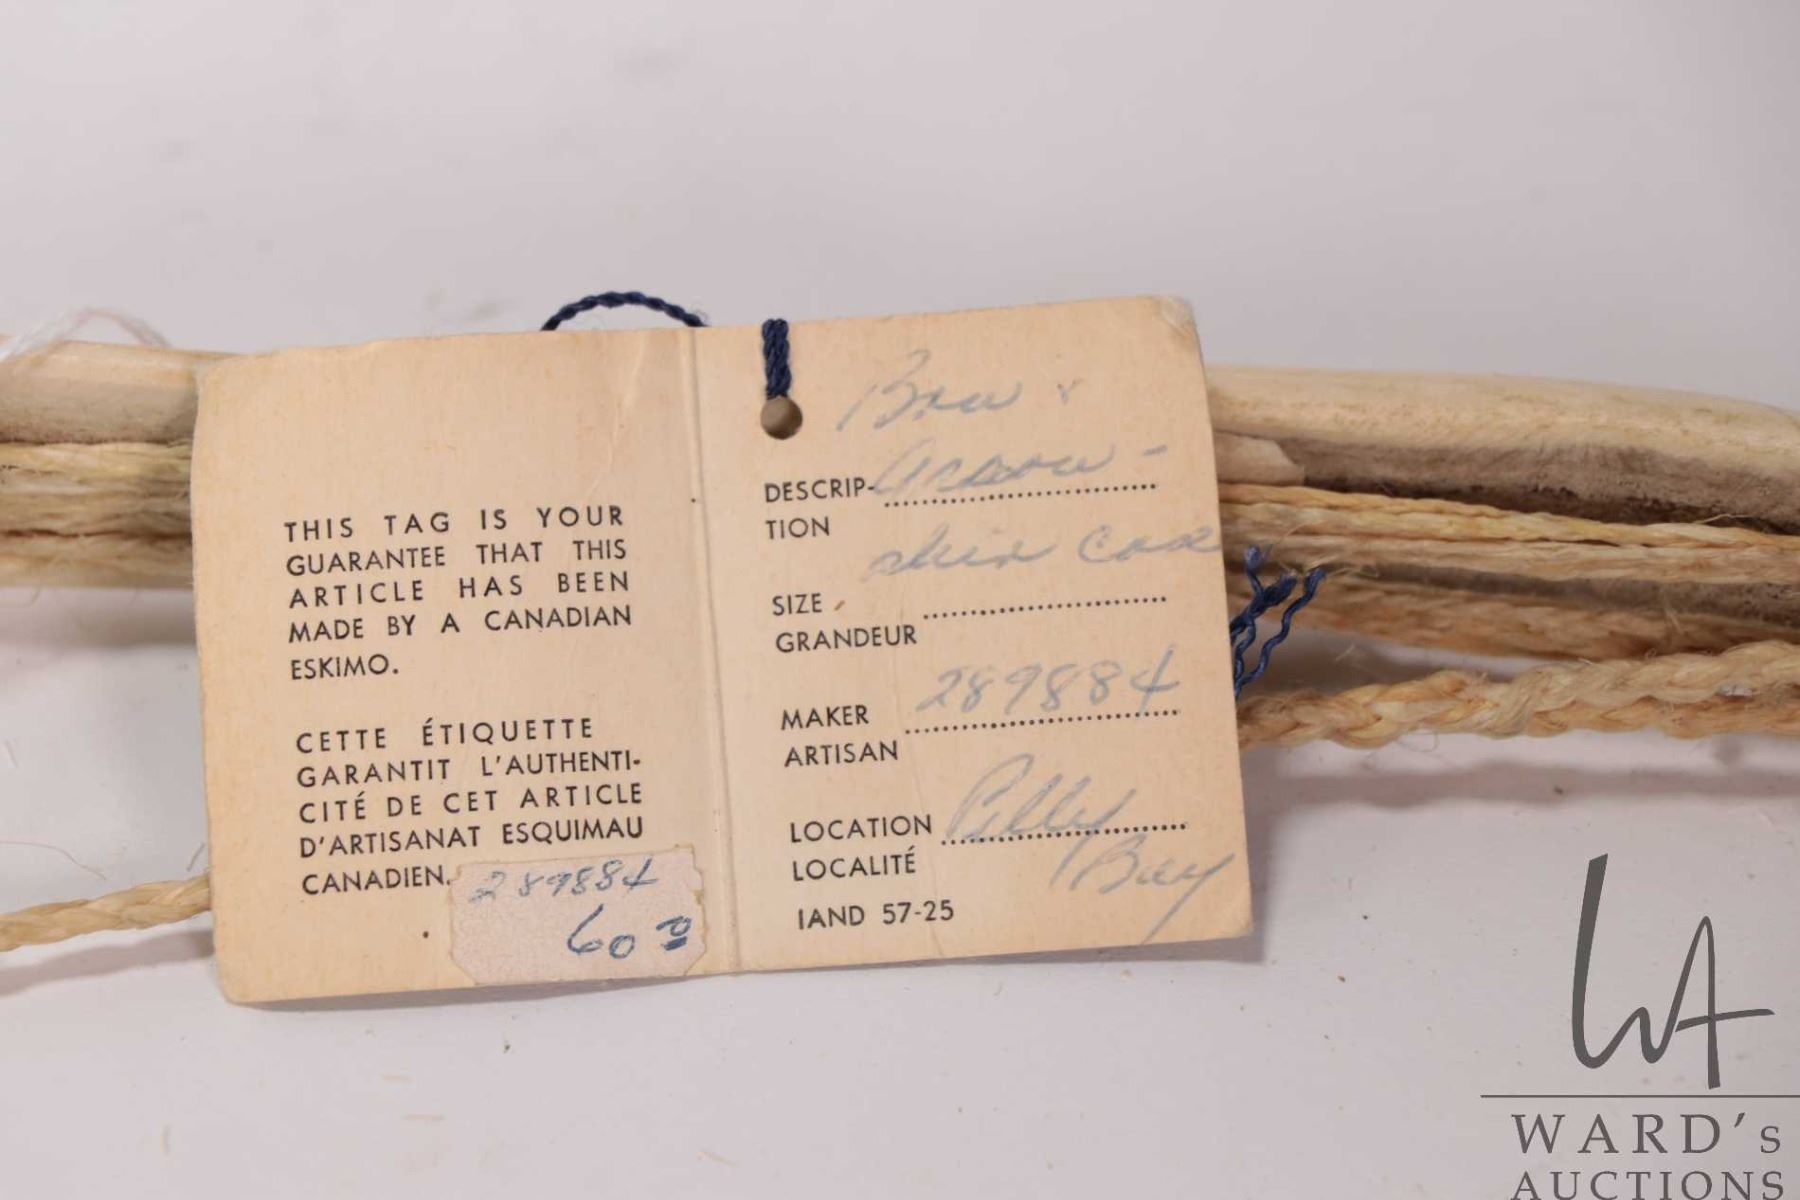 THIS TAG IS YOUR
GUARANTEE THAT THIS
ARTICLE HAS BEEN
MADE BY A CANADIAN
ESKIMO.
CETTE ÉTIQUETTE
GARANTIT L'AUTHENTI-
CITÉ DE CET ARTICLE
D'ARTISANAT ESQUIMAU
CANADIEN.
289884
60
Bow &
DESCRIP- arrow -
TION
skin case
SIZE
GRANDEUR
MAKER 289884
ARTISAN
LOCATION Pelly
LOCALITÉ Bay
IAND 57-25
WARD's
AUCTIONS